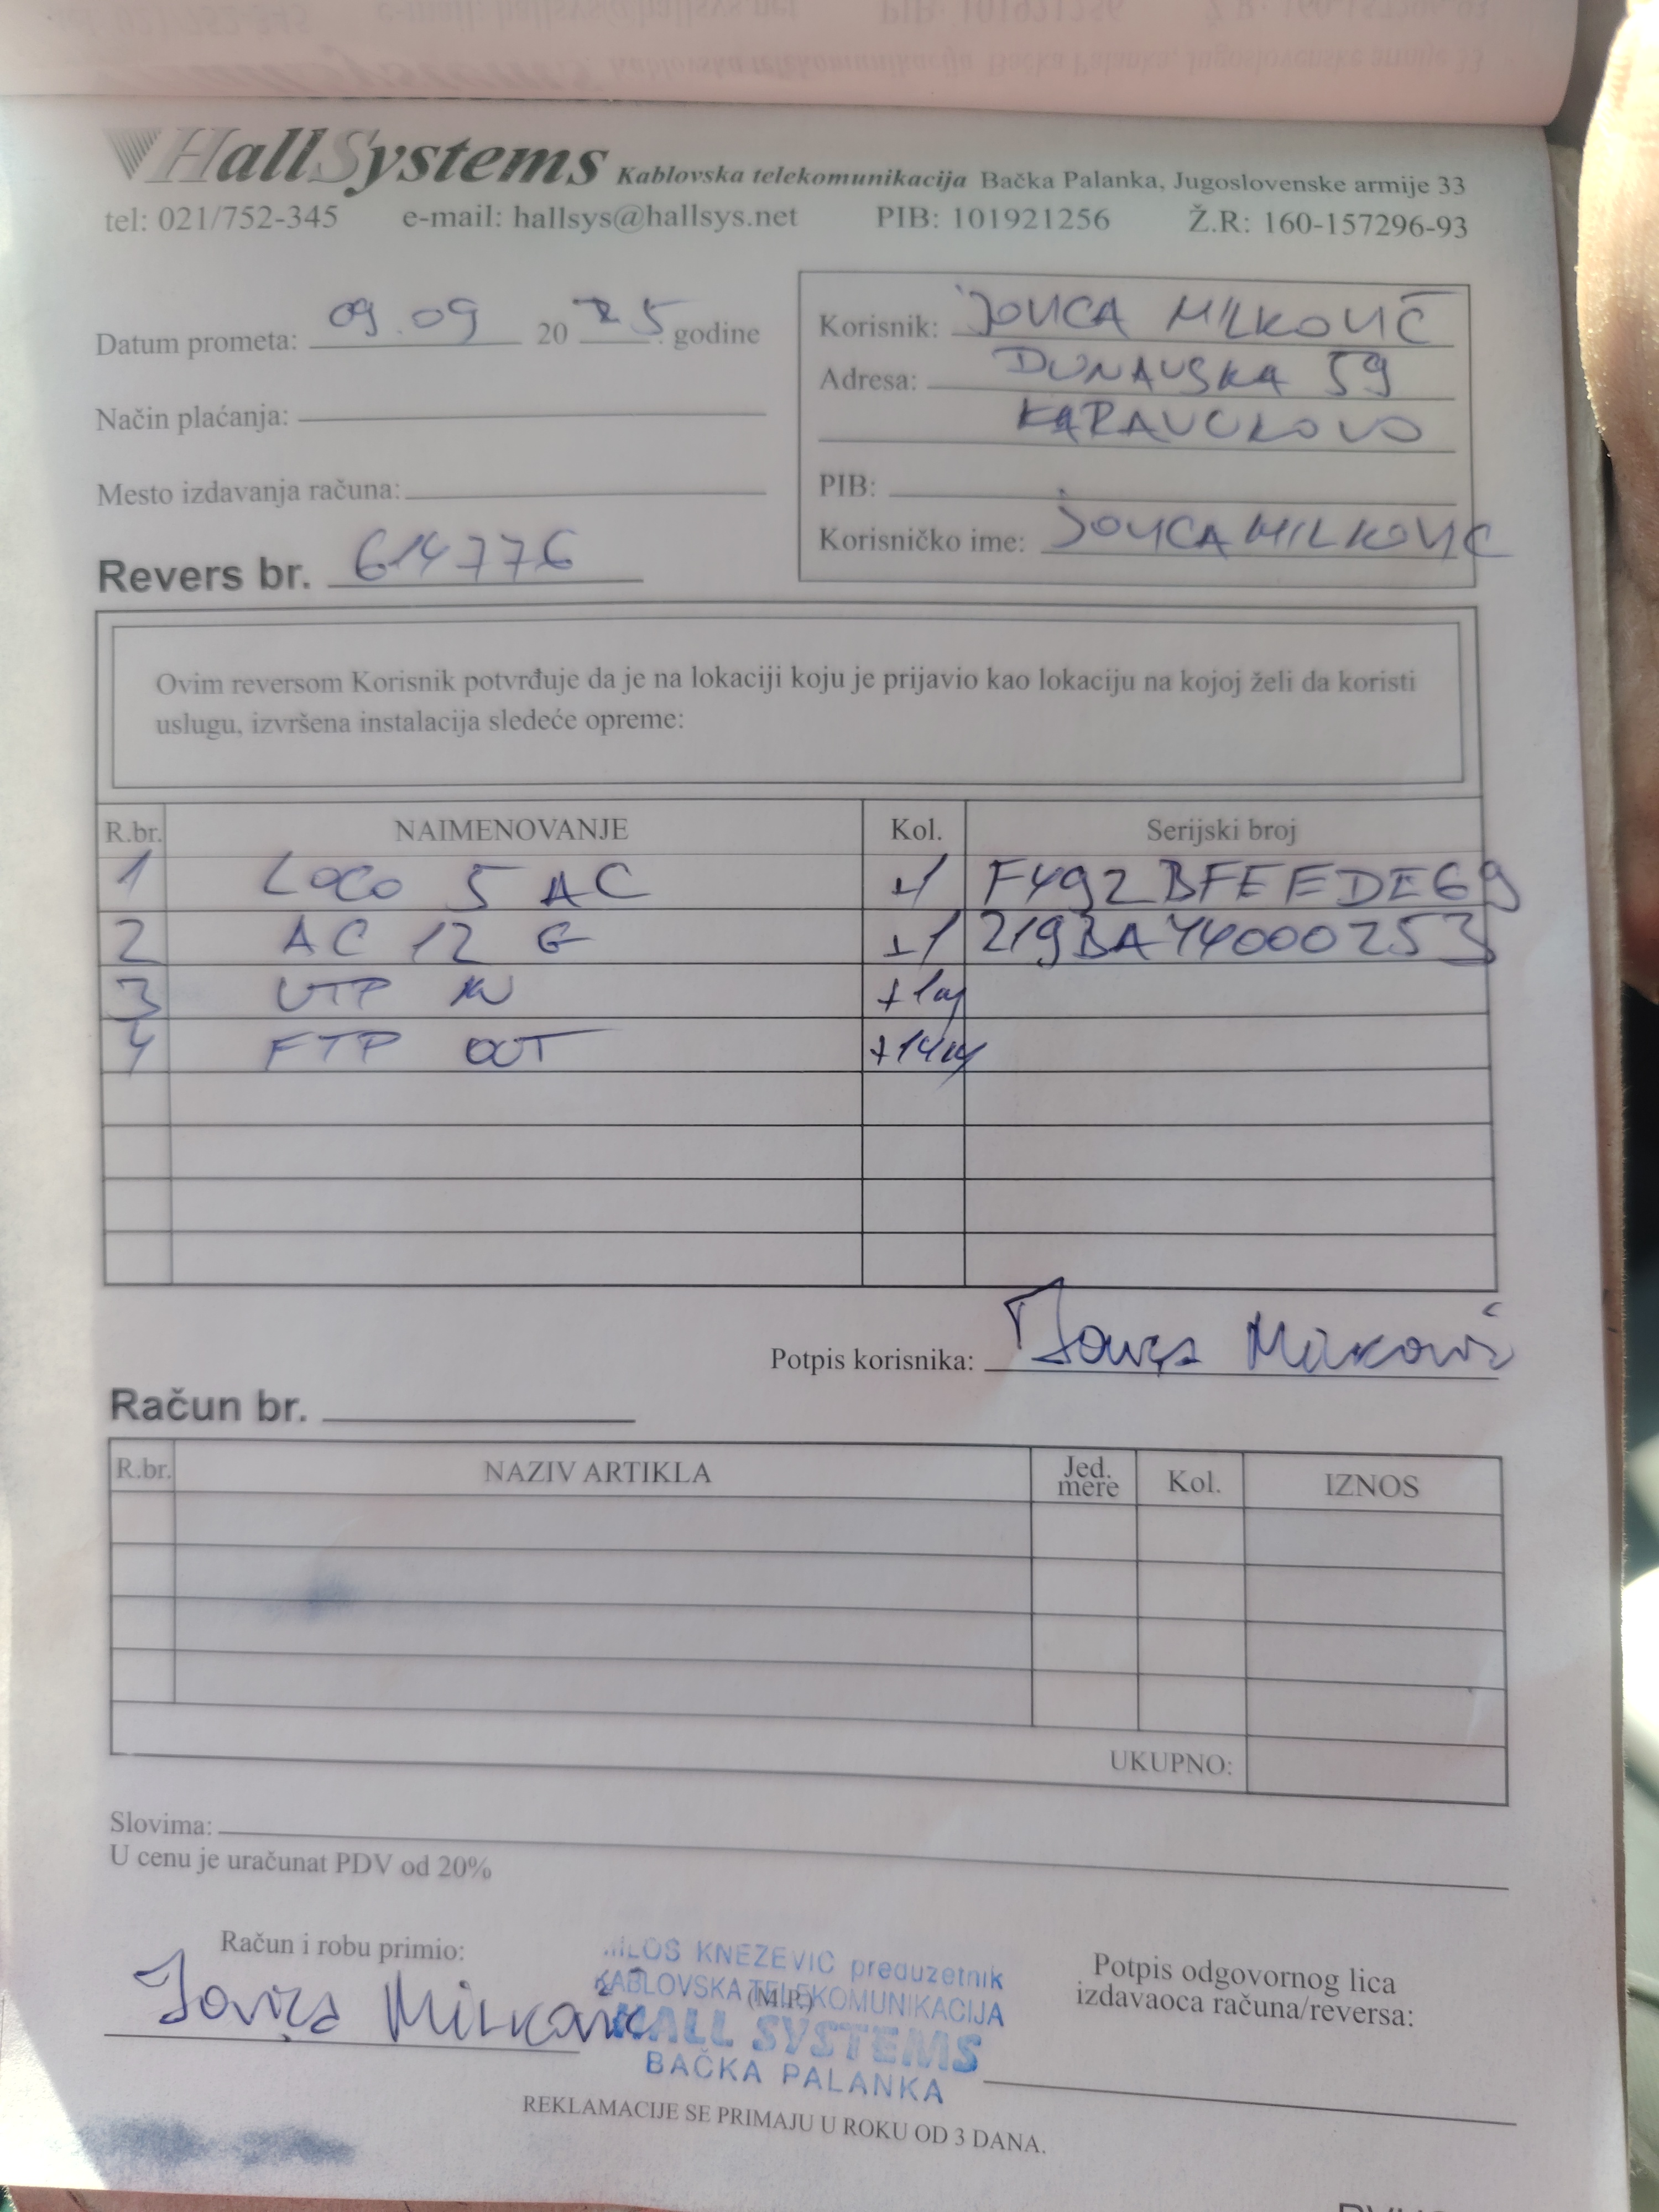 HallSystems Kablovska telekomunikacija Bačka Palanka, Jugoslovenske armije 33
tel: 021/752-345 e-mail: hallsys@hallsys.net PIB: 101921256 Ž.R: 160-157296-93
Datum prometa: 09.09 2025 godine
Način plaćanja:
Mesto izdavanja računa:
Revers br. 614776
Korisnik: JOVICA MILKOVIĆ
Adresa: DUNAVSKA 59
KARAVUKOVO
PIB:
Korisničko ime: JOVICAMILKOVIC
Ovim reversom Korisnik potvrđuje da je na lokaciji koju je prijavio kao lokaciju na kojoj želi da koristi
uslugu, izvršena instalacija sledeće opreme:
R.br. NAIMENOVANJE Kol. Serijski broj
1 LOCO 5 AC +1 F492BFEEDE69
2 AC 12 G +1 219BAY4000253
3 UTP IN +1m
4 FTP OUT +14m
Potpis korisnika: Jovica Milković
Račun br.
R.br. NAZIV ARTIKLA Jed. mere Kol. IZNOS
UKUPNO:
Slovima:
U cenu je uračunat PDV od 20%
Računi robu primio:
Jovica Milković
MILOŠ KNEŽEVIĆ preduzetnik
KABLOVSKA TELEKOMUNIKACIJA
(M.P.)
HALL SYSTEMS
BAČKA PALANKA
Potpis odgovornog lica
izdavaoca računa/reversa:
REKLAMACIJE SE PRIMAJU U ROKU OD 3 DANA.